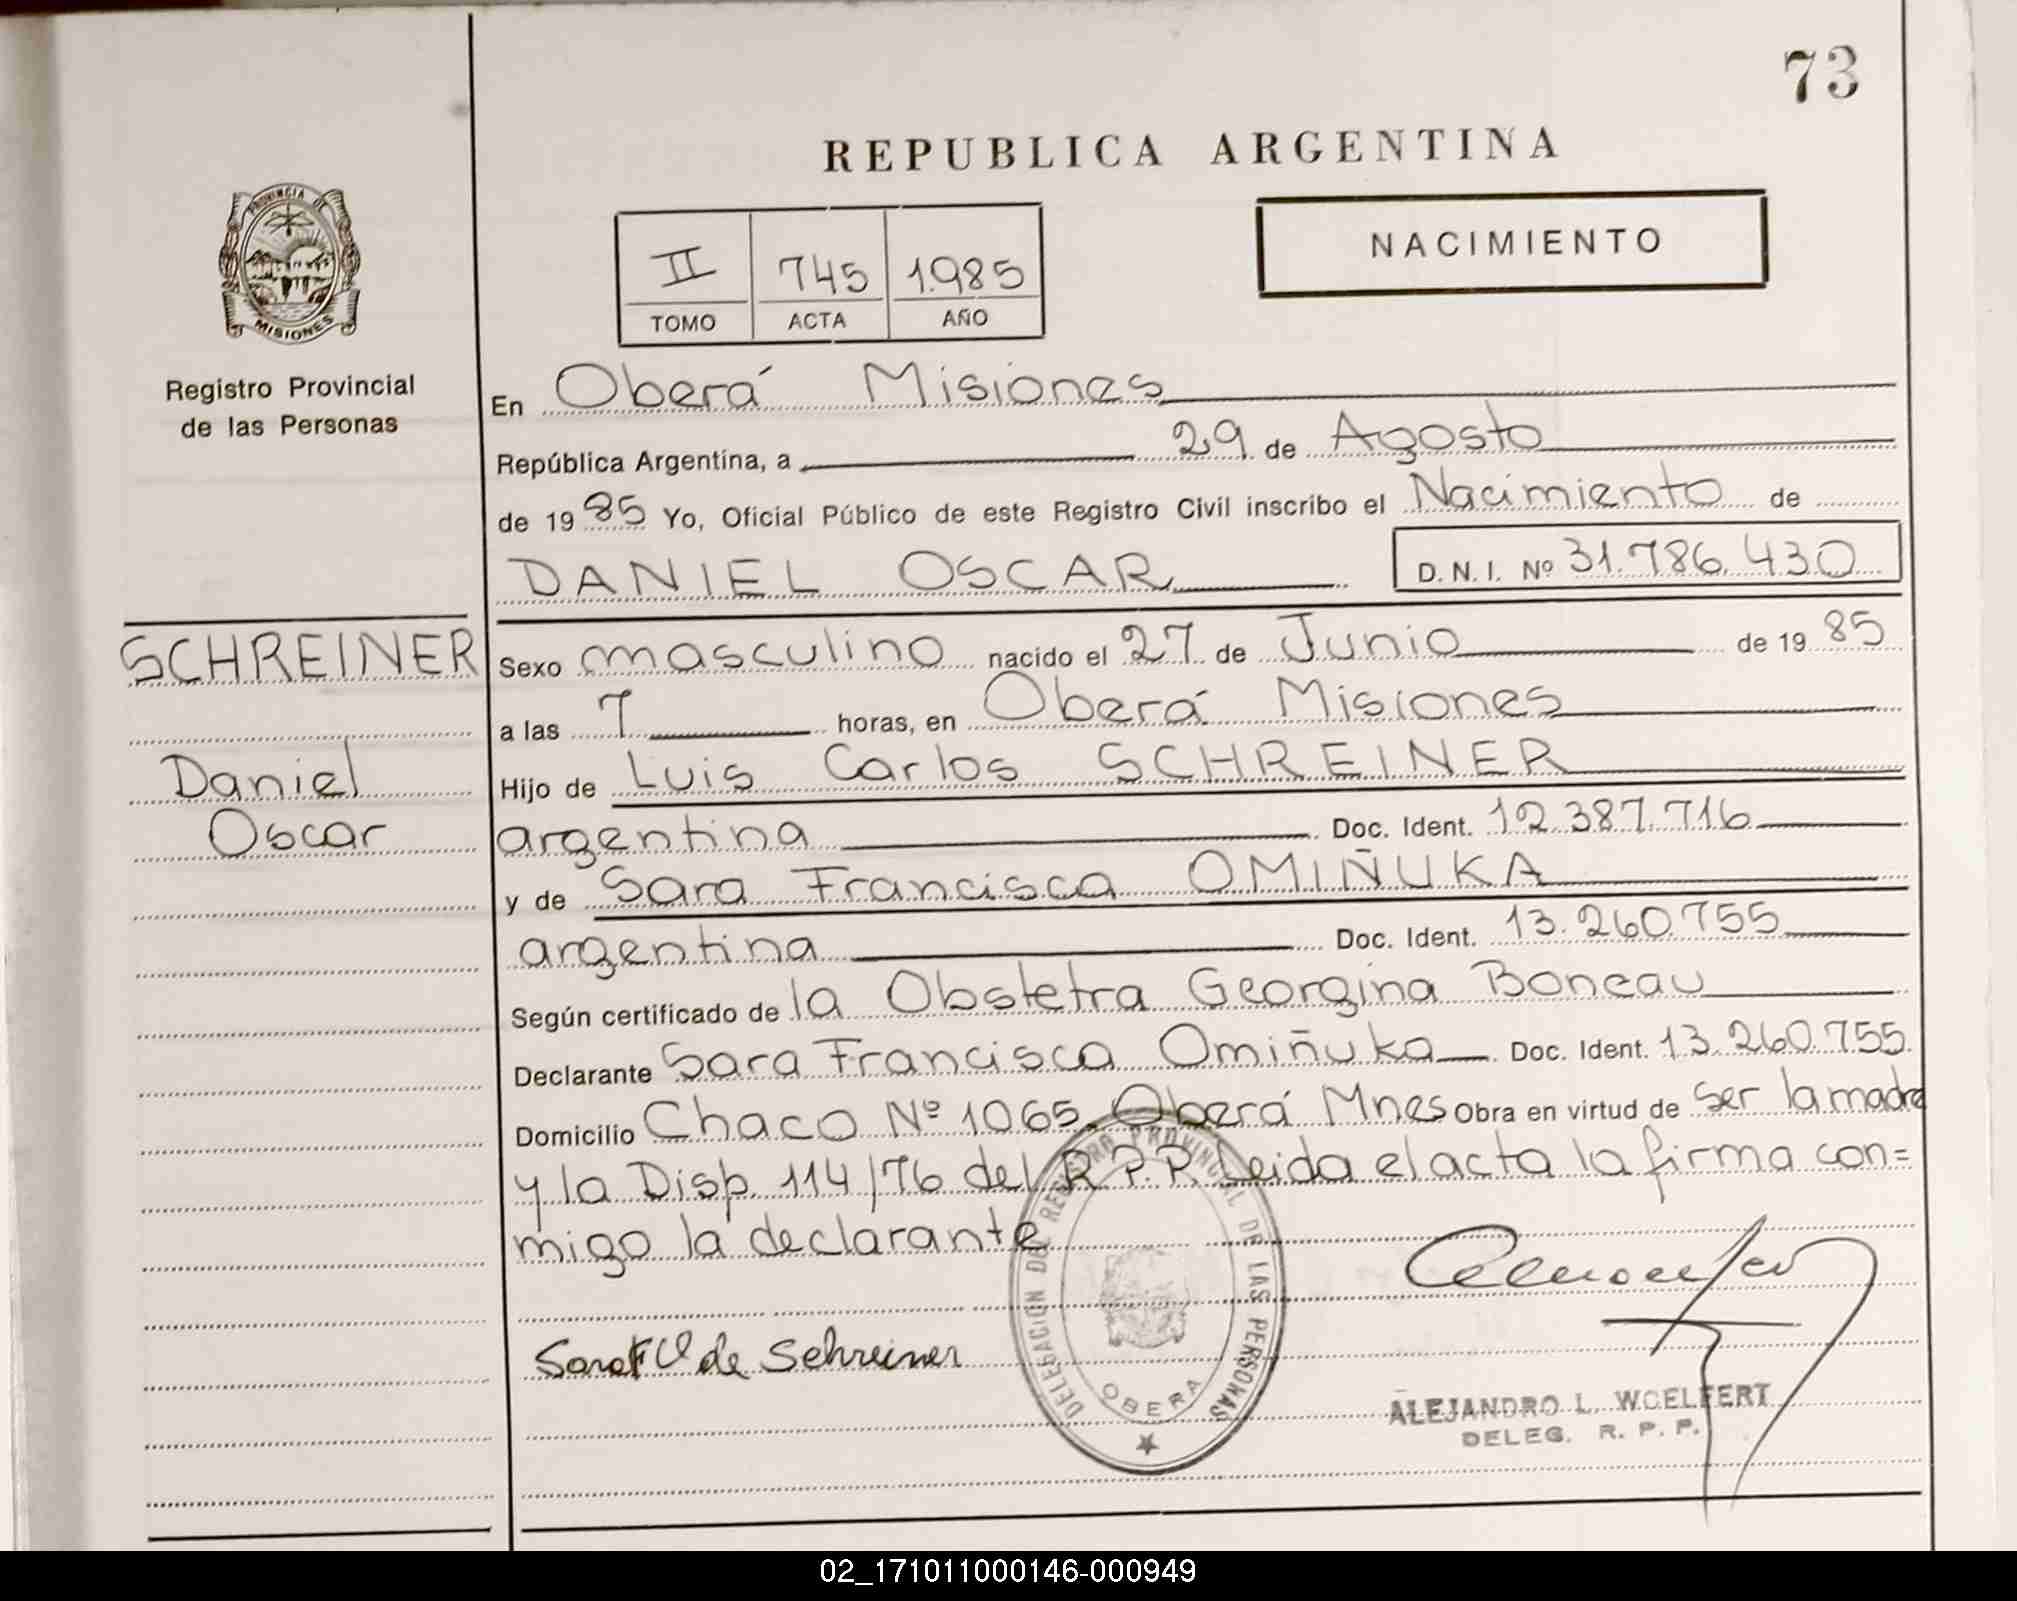 73
REPUBLICA ARGENTINA
PROVINCIA DE
MISIONES
Registro Provincial
de las Personas
II 745 1.985
TOMO ACTA AÑO
NACIMIENTO
En Oberá Misiones
República Argentina, a 29 de Agosto
de 1985 Yo, Oficial Público de este Registro Civil inscribo el Nacimiento de
DANIEL OSCAR D.N.I. Nº 31.786.430
SCHREINER
Daniel
Oscar
Sexo masculino nacido el 27 de Junio de 1985
a las 7 horas, en Oberá Misiones
Hijo de Luis Carlos SCHREINER
argentina Doc. Ident. 12.387.716
y de Sara Francisca OMIÑUKA
argentina Doc. Ident. 13.260.755
Según certificado de la Obstetra Georgina Boneau
Declarante Sara Francisca Omiñuka Doc. Ident. 13.260.755
Domicilio Chaco Nº 1065. Oberá Mnes Obra en virtud de ser la madre
y la Disp. 114/76 del R.P.P. Leida el acta la firma con=
migo la declarante
de Schreiner
DELEGACIÓN DEL REGISTRO PROVINCIAL DE LAS PERSONAS
OBERA
ALEJANDRO L. WOELFERT
DELEG. R. P. P.
02_171011000146-000949